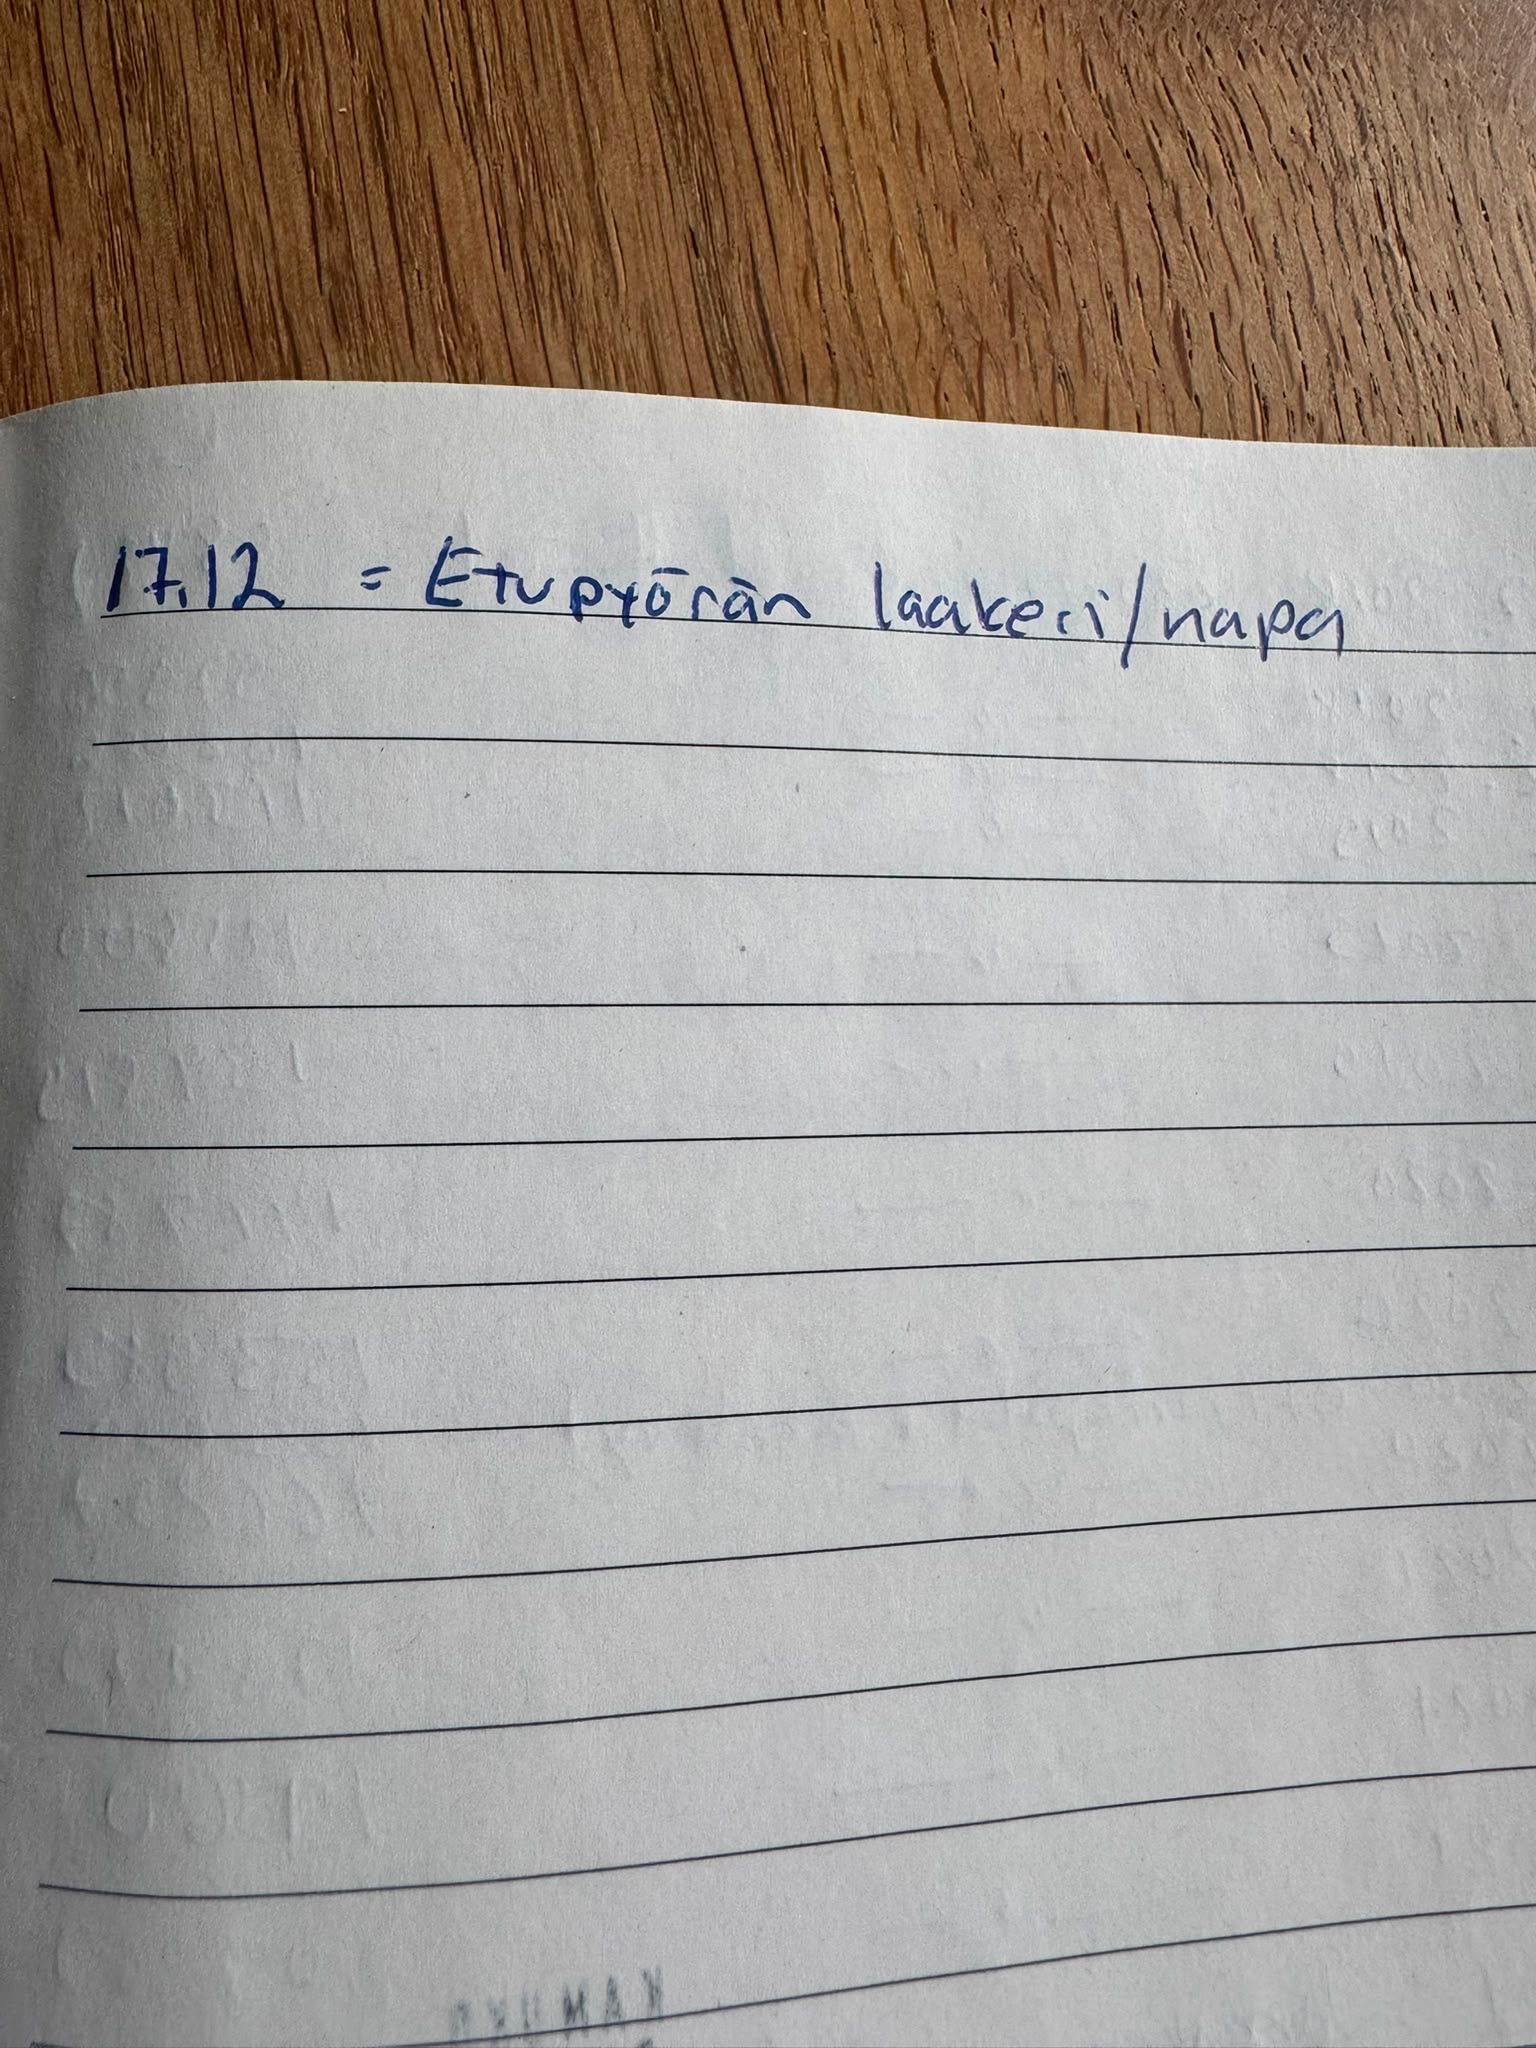 17.12 = Etupyörän laakeri/napa